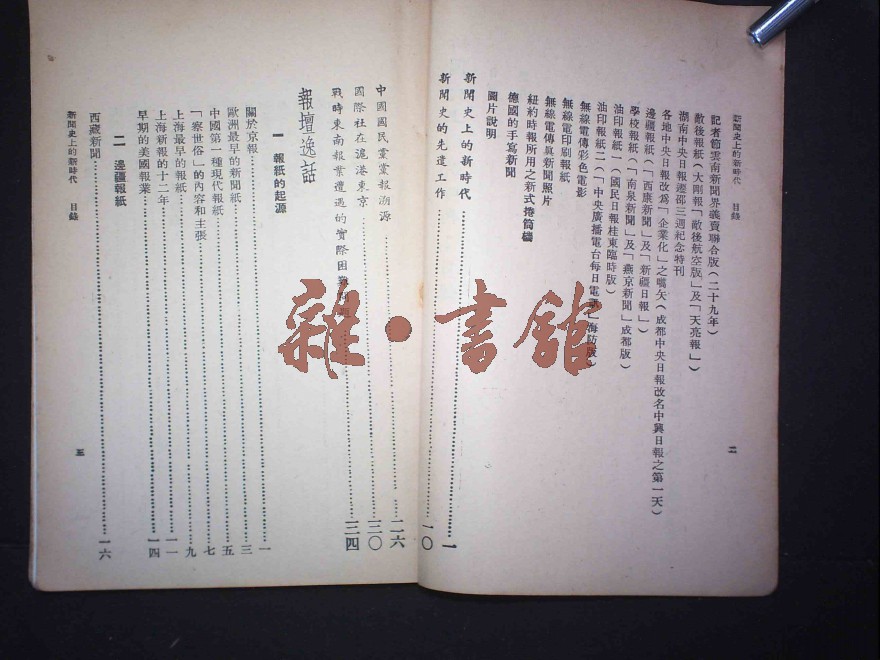 新聞史上的新時代　目錄
二
記者節雲南新聞界義賣聯合版（二十九年）
敵後報紙（大剛報「敵後航空版」及「天亮報」）
湖南中央日報遷邵三週紀念特刊
各地中央日報改爲「企業化」之嚆矢（成都中央日報改名中興日報之第一天）
邊疆報紙（「西康新聞」及「新疆日報」）
學校報紙（「南泉新聞」及「燕京新聞」成都版）
油印報紙一（國民日報桂東臨時版）
油印報紙二（「中央廣播電台每日電訊」海防版）
無線電傳彩色電影
無線電印刷報紙
無線電傳眞新聞照片
紐約時報所用之新式捲筒機
德國的手寫新聞
圖片說明
新聞史上的新時代…………一
新聞史的先遣工作…………一〇
中國國民黨黨報溯源…………二六
國際社在滬港東京…………三〇
戰時東南報業遭遇的實際困難…………三四
報壇逸話
一　報紙的起源
關於京報…………一
歐洲最早的新聞紙…………三
中國第一種現代報紙…………五
「察世俗」的內容和主張…………七
上海最早的報紙…………九
上海新報的十二年…………一一
早期的美國報業…………一四
二　邊疆報紙
西藏新聞…………一六
新聞史上的新時代　目錄
五
雜·書館